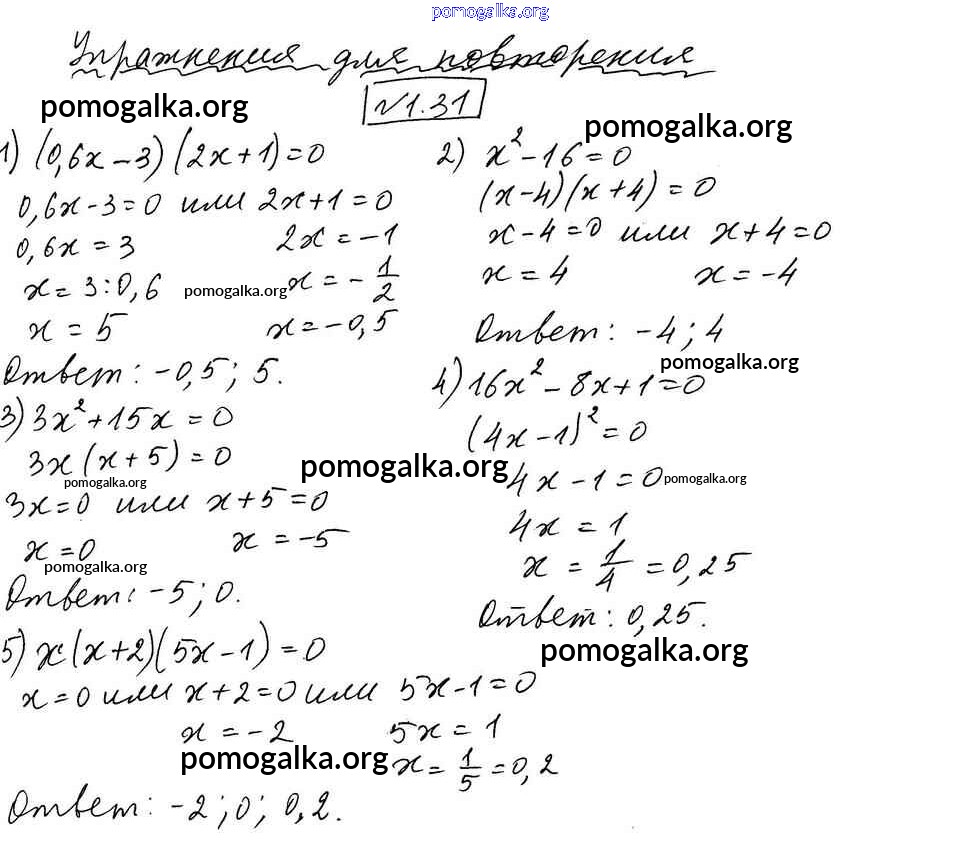 pomogalka.org
Упражнения для повторения
pomogalka.org
№1.31
pomogalka.org
1) (0,6x-3)(2x+1)=0
0,6x-3=0 или 2x+1=0
0,6x=3 2x=-1
x=3:0,6 pomogalka.org x=-1/2
x=5 x=-0,5
Ответ: -0,5; 5.
2) x²-16=0
(x-4)(x+4)=0
x-4=0 или x+4=0
x=4 x=-4
Ответ: -4; 4
pomogalka.org
3) 3x²+15x=0
3x(x+5)=0
pomogalka.org
pomogalka.org
3x=0 или x+5=0
x=0 x=-5
pomogalka.org
Ответ: -5; 0.
4) 16x²-8x+1=0
(4x-1)²=0
4x-1=0 pomogalka.org
4x=1
x=1/4=0,25
Ответ: 0,25.
pomogalka.org
5) x(x+2)(5x-1)=0
x=0 или x+2=0 или 5x-1=0
x=-2 5x=1
pomogalka.org x=1/5=0,2
Ответ: -2; 0; 0,2.